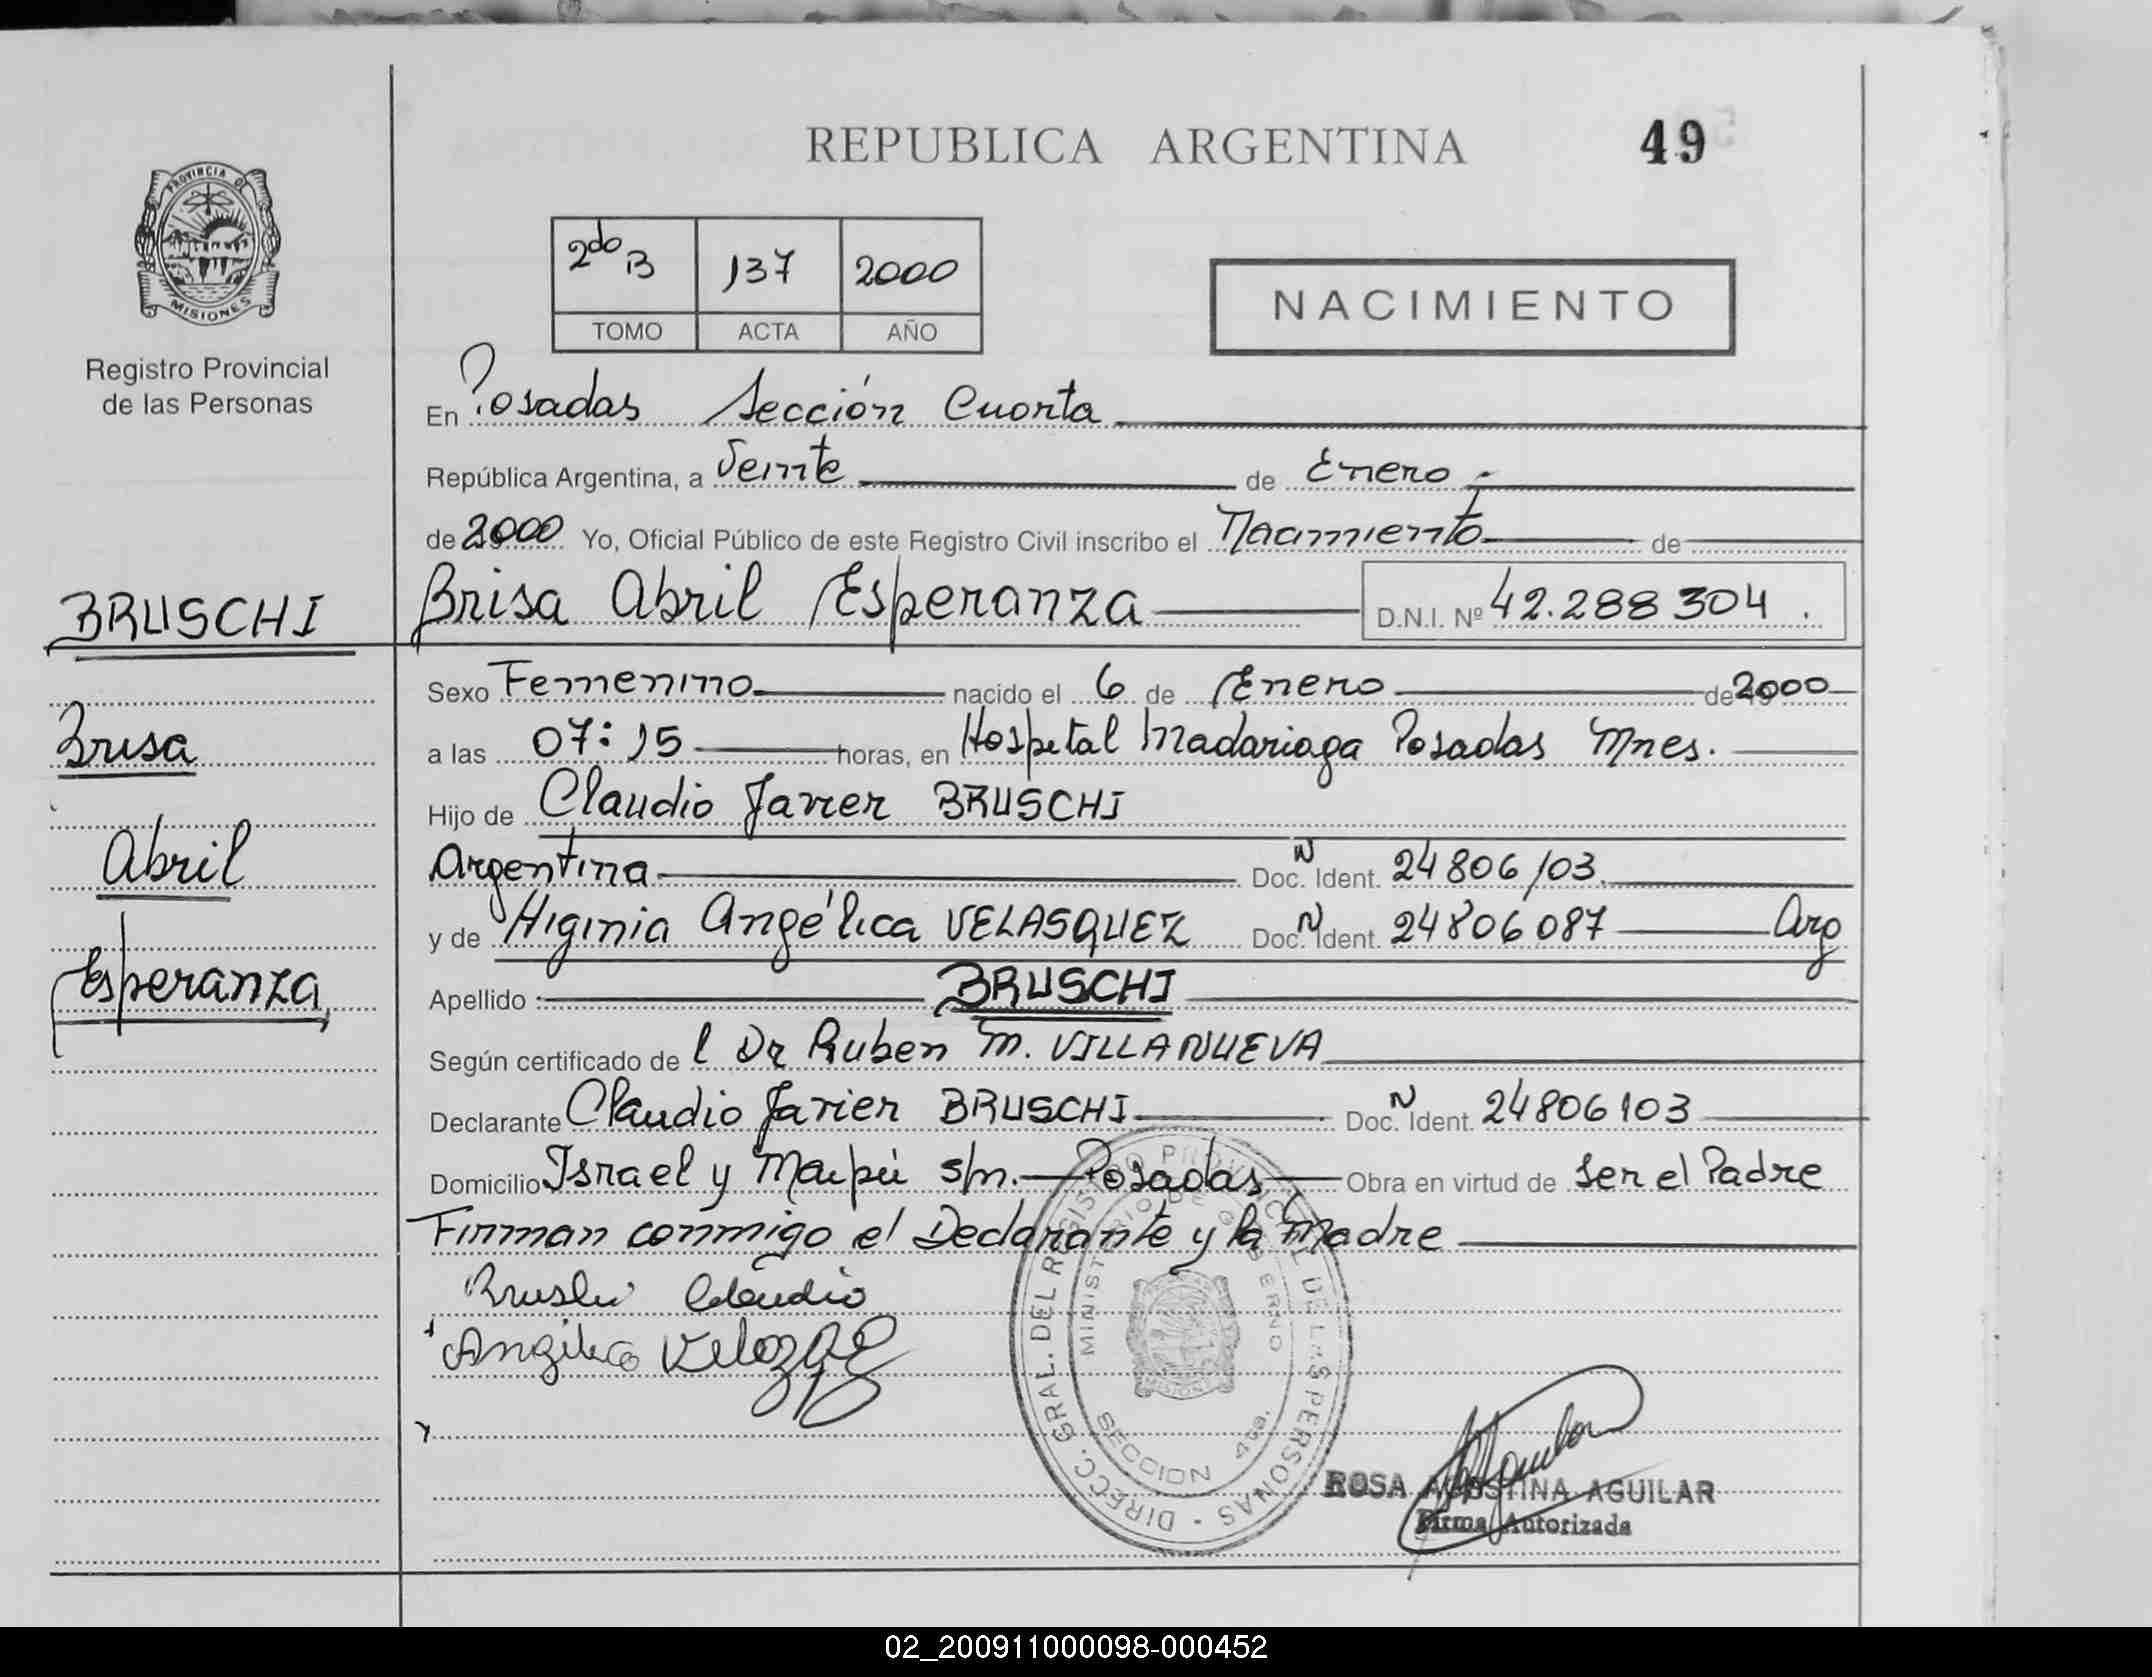 REPUBLICA ARGENTINA
49
PROVINCIA DE
MISIONES
Registro Provincial
de las Personas
2do B 137 2000
TOMO ACTA AÑO
NACIMIENTO
En Posadas Sección Cuarta
República Argentina, a Veinte de Enero
de 2000 Yo, Oficial Público de este Registro Civil inscribo el Nacimiento de
BRUSCHI
Brisa Abril Esperanza D.N.I. Nº 42.288 304.
Sexo Femenino nacido el 6 de Enero de 2000
Brisa
a las 07:15 horas, en Hospital Madariaga Posadas Mnes.
Hijo de Claudio Javier BRUSCHI
Abril
Argentina Doc. N Ident. 24806103
y de Higinia Angélica VELASQUEZ Doc. N Ident. 24806087 Arg
Esperanza
Apellido: BRUSCHI
Según certificado de l Dr Ruben M. VILLANUEVA
Declarante Claudio Javier BRUSCHI Doc. N Ident. 24806103
Domicilio Israel y Maipú s/n. Posadas Obra en virtud de Ser el Padre
Firman conmigo el Declarante y la Madre
Bruschi Claudio
Angelica
DIRECC. GRAL. DEL REGISTRO PROVINCIAL DE LAS PERSONAS -
MINISTERIO DE GOBIERNO
MISIONES
SECCION 4ta.
ROSA AGOSTINA AGUILAR
Firma Autorizada
02_200911000098-000452